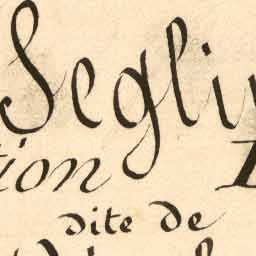 Segli
tion
dite de